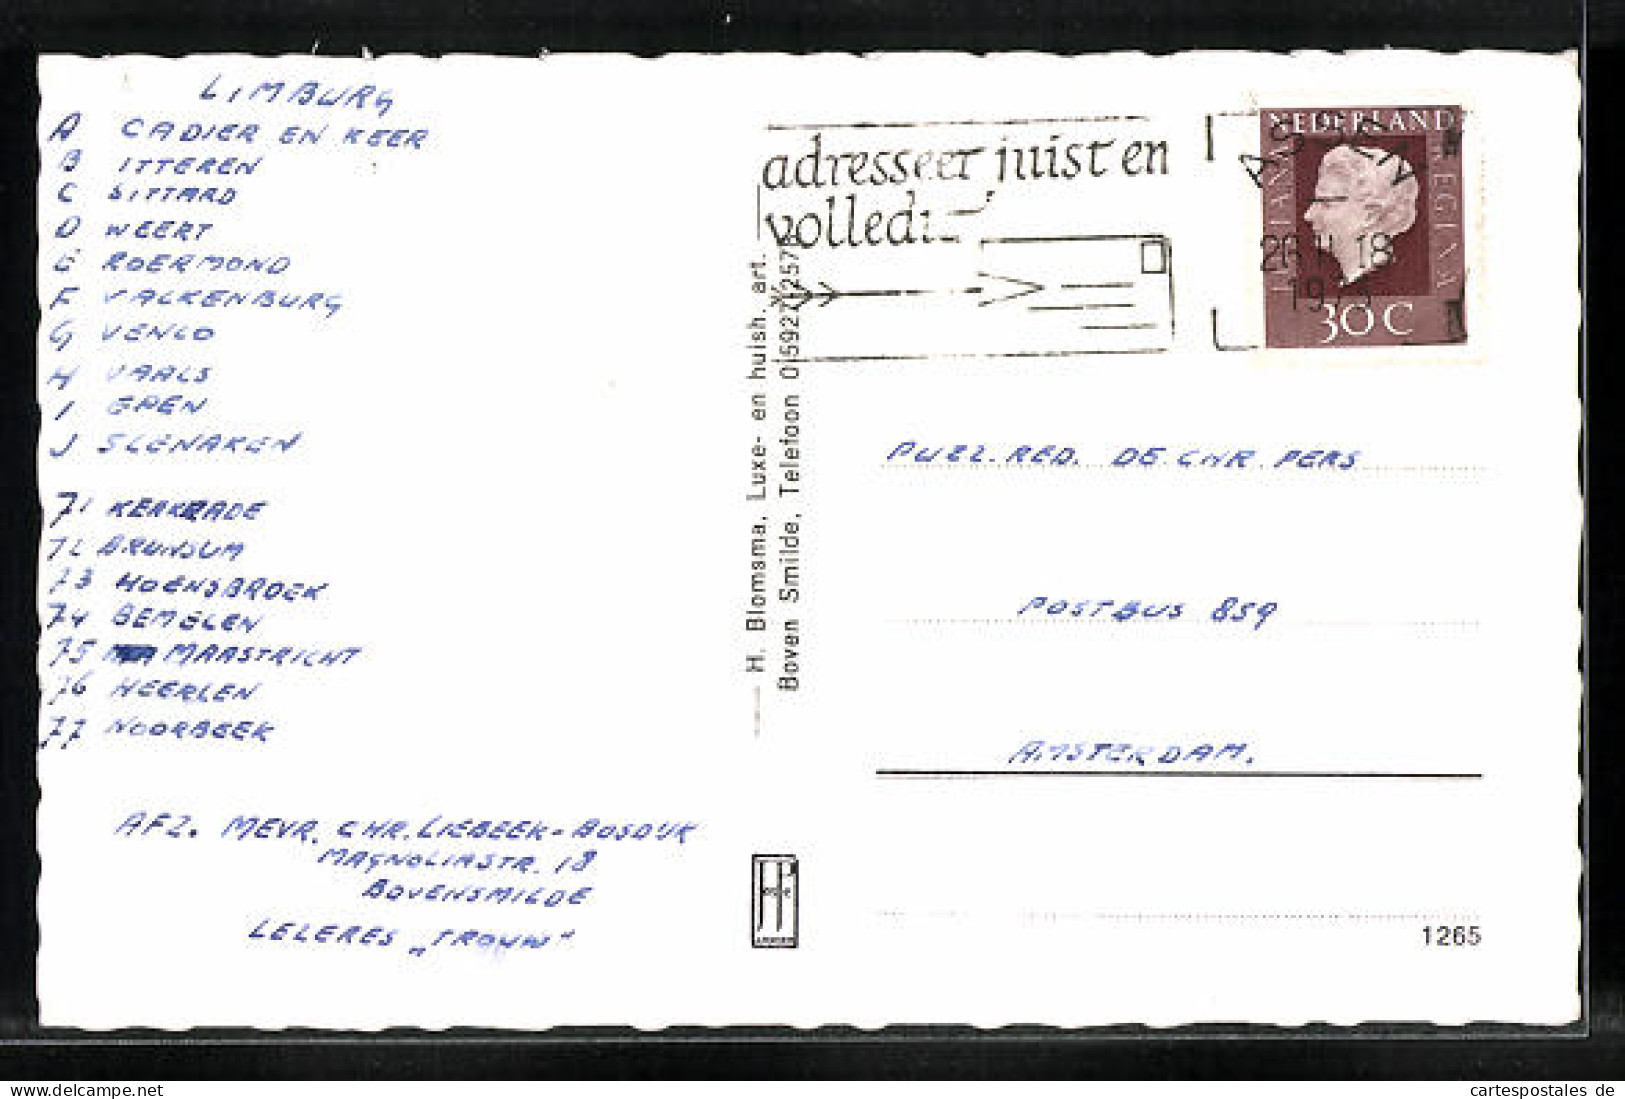 LIMBURG
A CADIER EN KEER
B ITTEREN
C SITTARD
D WEERT
E ROERMOND
F VALKENBURG
G VENLO
H VAALS
I EPEN
J SLENAKEN
71 KERKRADE
72 BRUNSUM
73 HOENSBROEK
74 BEMELEN
75 MAASTRICHT
76 HEERLEN
77 NOORBEEK
AFZ. MEVR. CHR. LIEBEEK-BOSDUK
MAGNOLIASTR. 18
BOVENSMILDE
LELERES „TROUW"
H. Blomsma, Luxe- en huish. art.
Boven Smilde, Telefoon 05927-257
adresseer juist en
volledi
NEDERLAND
JULIANA REGINA
30 C
ASSEN
18
197
PUZZ. RED. DE CHR. PERS
POSTBUS 859
AMSTERDAM.
1265
the-nextsale.com
cartespostales de